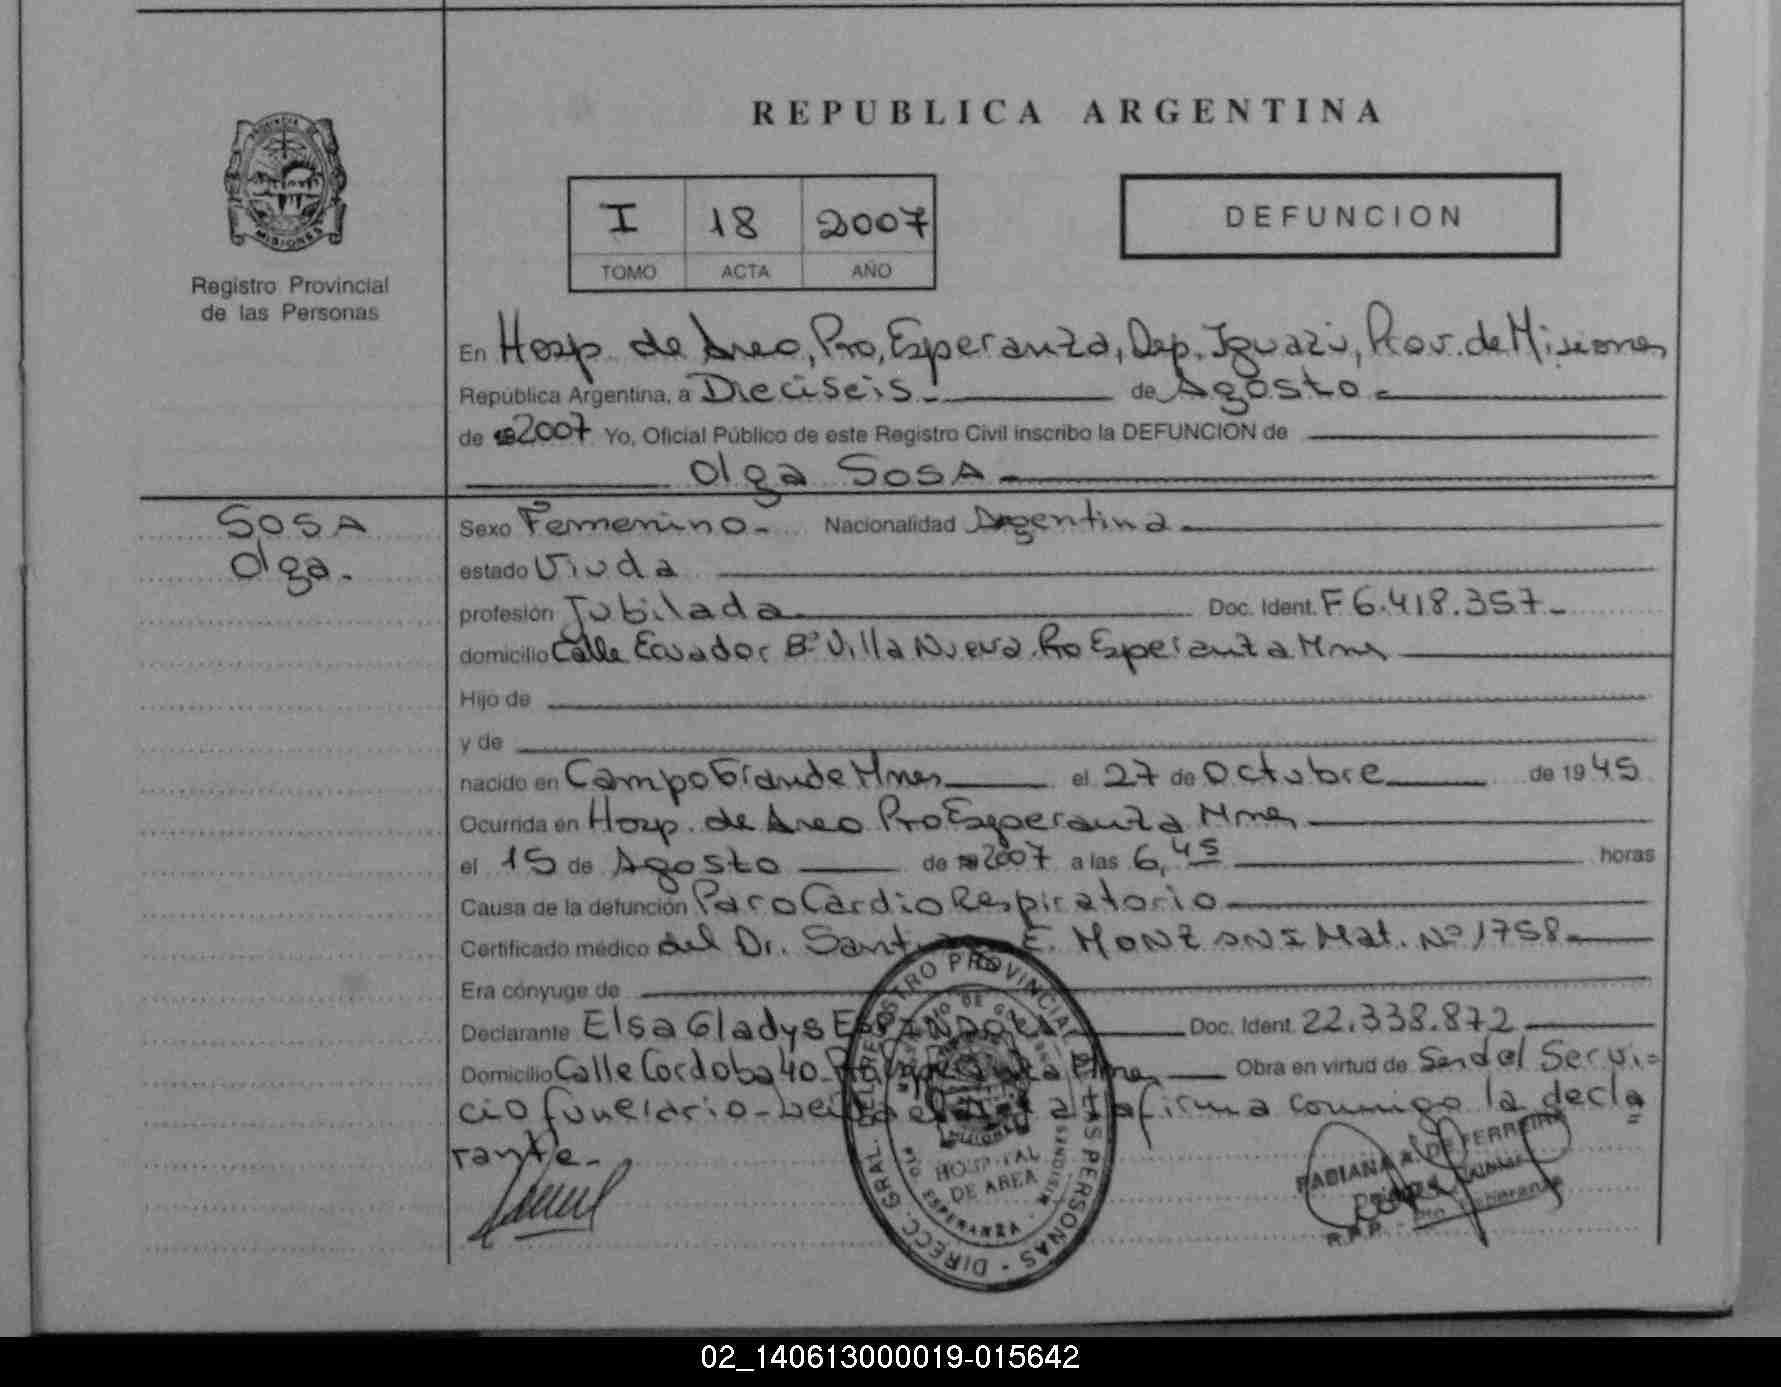 REPUBLICA ARGENTINA
PROVINCIA DE
MISIONES
Registro Provincial
de las Personas
I 18 2007
TOMO ACTA AÑO
DEFUNCION
En Hosp. de Area, Pto, Esperanza, Dep. Iguazú, Prov. de Misiones
República Argentina, a Dieciseis.- de Agosto.-
de 2007 Yo, Oficial Público de este Registro Civil inscribo la DEFUNCION de
Olga SOSA
SOSA
Olga.
Sexo Femenino.- Nacionalidad Argentina.
estado Viuda
profesión Jubilada Doc. Ident. F 6.418.357.-
domicilio Calle Ecuador Bº Villa Nueva. Pto Esperanza Mnes
Hijo de
y de
nacido en Campo Grande Mnes el 27 de Octubre de 1945
Ocurrida en Hosp. de Area Pto Esperanza Mnes
el 15 de Agosto de 2007 a las 6,45 horas
Causa de la defunción Paro Cardio Respiratorio
Certificado médico del Dr. E. Mat. Nº 1758.-
Era cónyuge de
Declarante Elsa Gladys Doc. Ident. 22.338.872
Domicilio Calle Cordoba 40. Mnes Obra en virtud de Ser del Servi=
cio funerario. firma conmigo la decla
rante.-
DIRECC. GRAL. DE REGISTRO PROVINCIAL DE LAS PERSONAS
HOSPITAL
DE AREA
ESPERANZA
FABIANA A. DE FERREIRA
R.P.P. - Pto. Esperanza
02_140613000019-015642